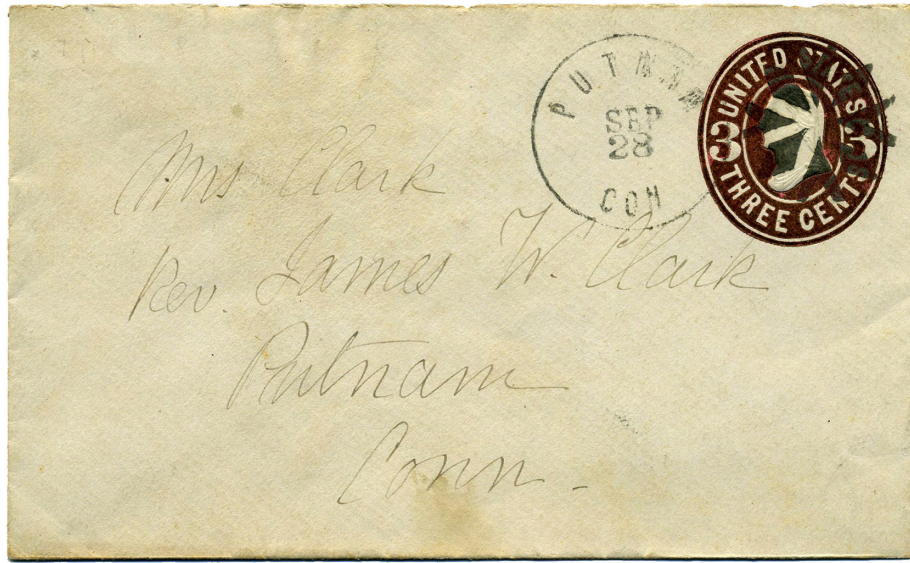 PUTNAM
SEP
28
CON
UNITED STATES
3 3
THREE CENTS
Mrs Clark
Rev. James W. Clark
Putnam
Conn.